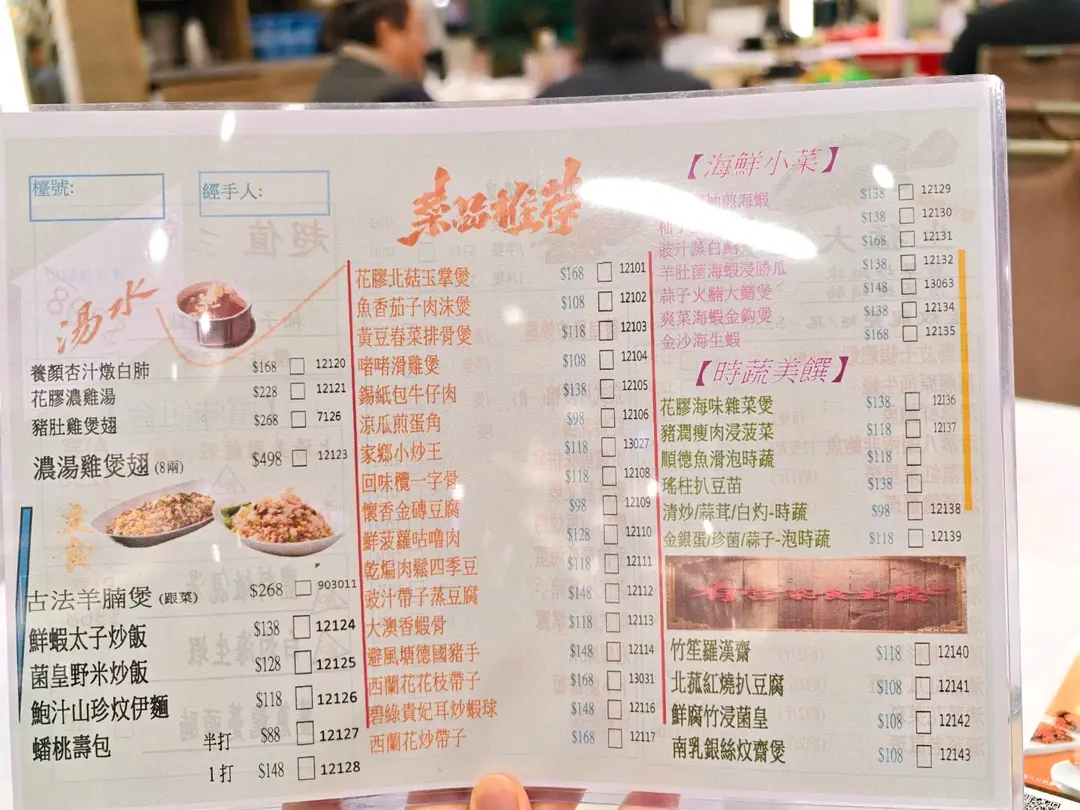 檯號:
經手人:
湯水
養顏杏汁燉白肺 $168 12120
花膠濃雞湯 $228 12121
豬肚雞煲翅 $268 7126
濃湯雞煲翅 (8兩) $498 12123
主食
古法羊腩煲 (跟菜) $268 903011
鮮蝦太子炒飯 $138 12124
菌皇野米炒飯 $128 12125
鮑汁山珍炆伊麵 $118 12126
蟠桃壽包 半打 $88 12127
1打 $148 12128
菜品推荐
花膠北菇玉掌煲 $168 12101
魚香茄子肉沫煲 $108 12102
黃豆春菜排骨煲 $118 12103
啫啫滑雞煲 $108 12104
錫紙包牛仔肉 $138 12105
涼瓜煎蛋角 $98 12106
家鄉小炒王 $118 13027
回味欖一字骨 $118 12108
懷香金磚豆腐 $98 12109
鮮菠蘿咕嚕肉 $128 12110
乾煸肉鬆四季豆 $118 12111
豉汁帶子蒸豆腐 $148 12112
大澳香蝦骨 $118 12113
避風塘德國豬手 $148 12114
西蘭花花枝帶子 $168 13031
碧綠貴妃耳炒蝦球 $148 12116
西蘭花炒帶子 $168 12117
【海鮮小菜】
煎海蝦 $138 12129
$138 12130
豉汁蒸白鱔 $168 12131
羊肚菌海蝦浸勝瓜 $138 12132
蒜子火腩大鱔煲 $148 13063
爽菜海蝦金鈎煲 $138 12134
金沙海生蝦 $168 12135
【時蔬美饌】
花膠海味雜菜煲 $138 12136
豬潤瘦肉浸菠菜 $118 12137
順德魚滑泡時蔬 $118
瑤柱扒豆苗 $138
清炒/蒜茸/白灼-時蔬 $98 12138
金銀蛋/珍菌/蒜子-泡時蔬 $118 12139
竹笙羅漢齋 $118 12140
北菰紅燒扒豆腐 $108 12141
鮮腐竹浸菌皇 $108 12142
南乳銀絲炆齋煲 $108 12143